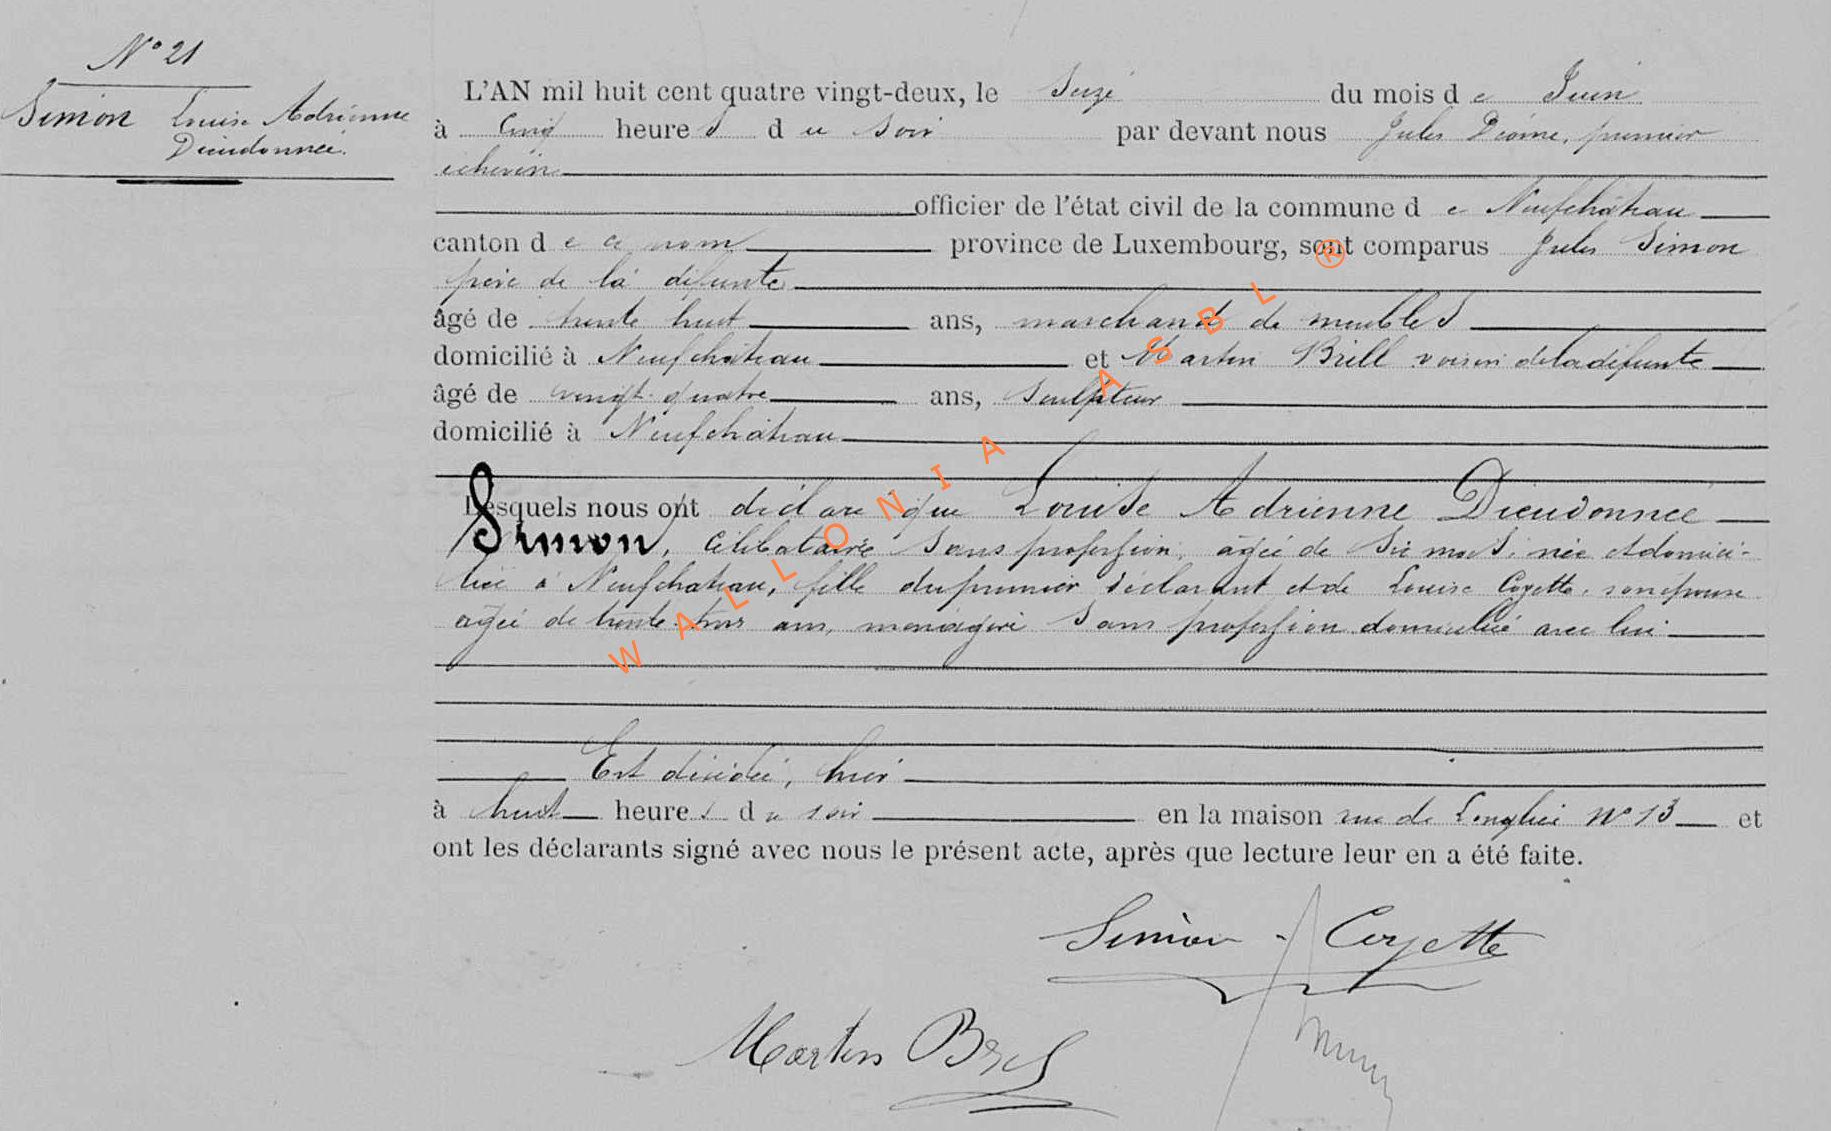 N° 21
Simon Louise Adrienne
Dieudonnée.
L'AN mil huit cent quatre vingt-deux, le Seize du mois de Juin
à Cinq heures du Soir par devant nous Jules premier
échevin
officier de l'état civil de la commune de Neufchâteau
canton de ce nom province de Luxembourg, sont comparus Jules Simon
père de la défunte
âgé de trente huit ans, marchand de meubles
domicilié à Neufchâteau et Martin Brill voisin de la défunte
âgé de vingt-quatre ans, Sculpteur
domicilié à Neufchâteau
Lesquels nous ont déclaré que Louise Adrienne Dieudonnée
Simon, célibataire sans profession, âgée de Six mois, née et domici-
liée à Neufchateau, fille du premier déclarant et de Louise Coyette, son épouse
agée de trente-trois ans, menagère sans profession domiciliée avec lui
Est décédée, hier
à huit heures du soir en la maison rue de Longlier N° 13 et
ont les déclarants signé avec nous le présent acte, après que lecture leur en a été faite.
Simon - Coyette
Martin Brill
WALLONIA ASBL ®